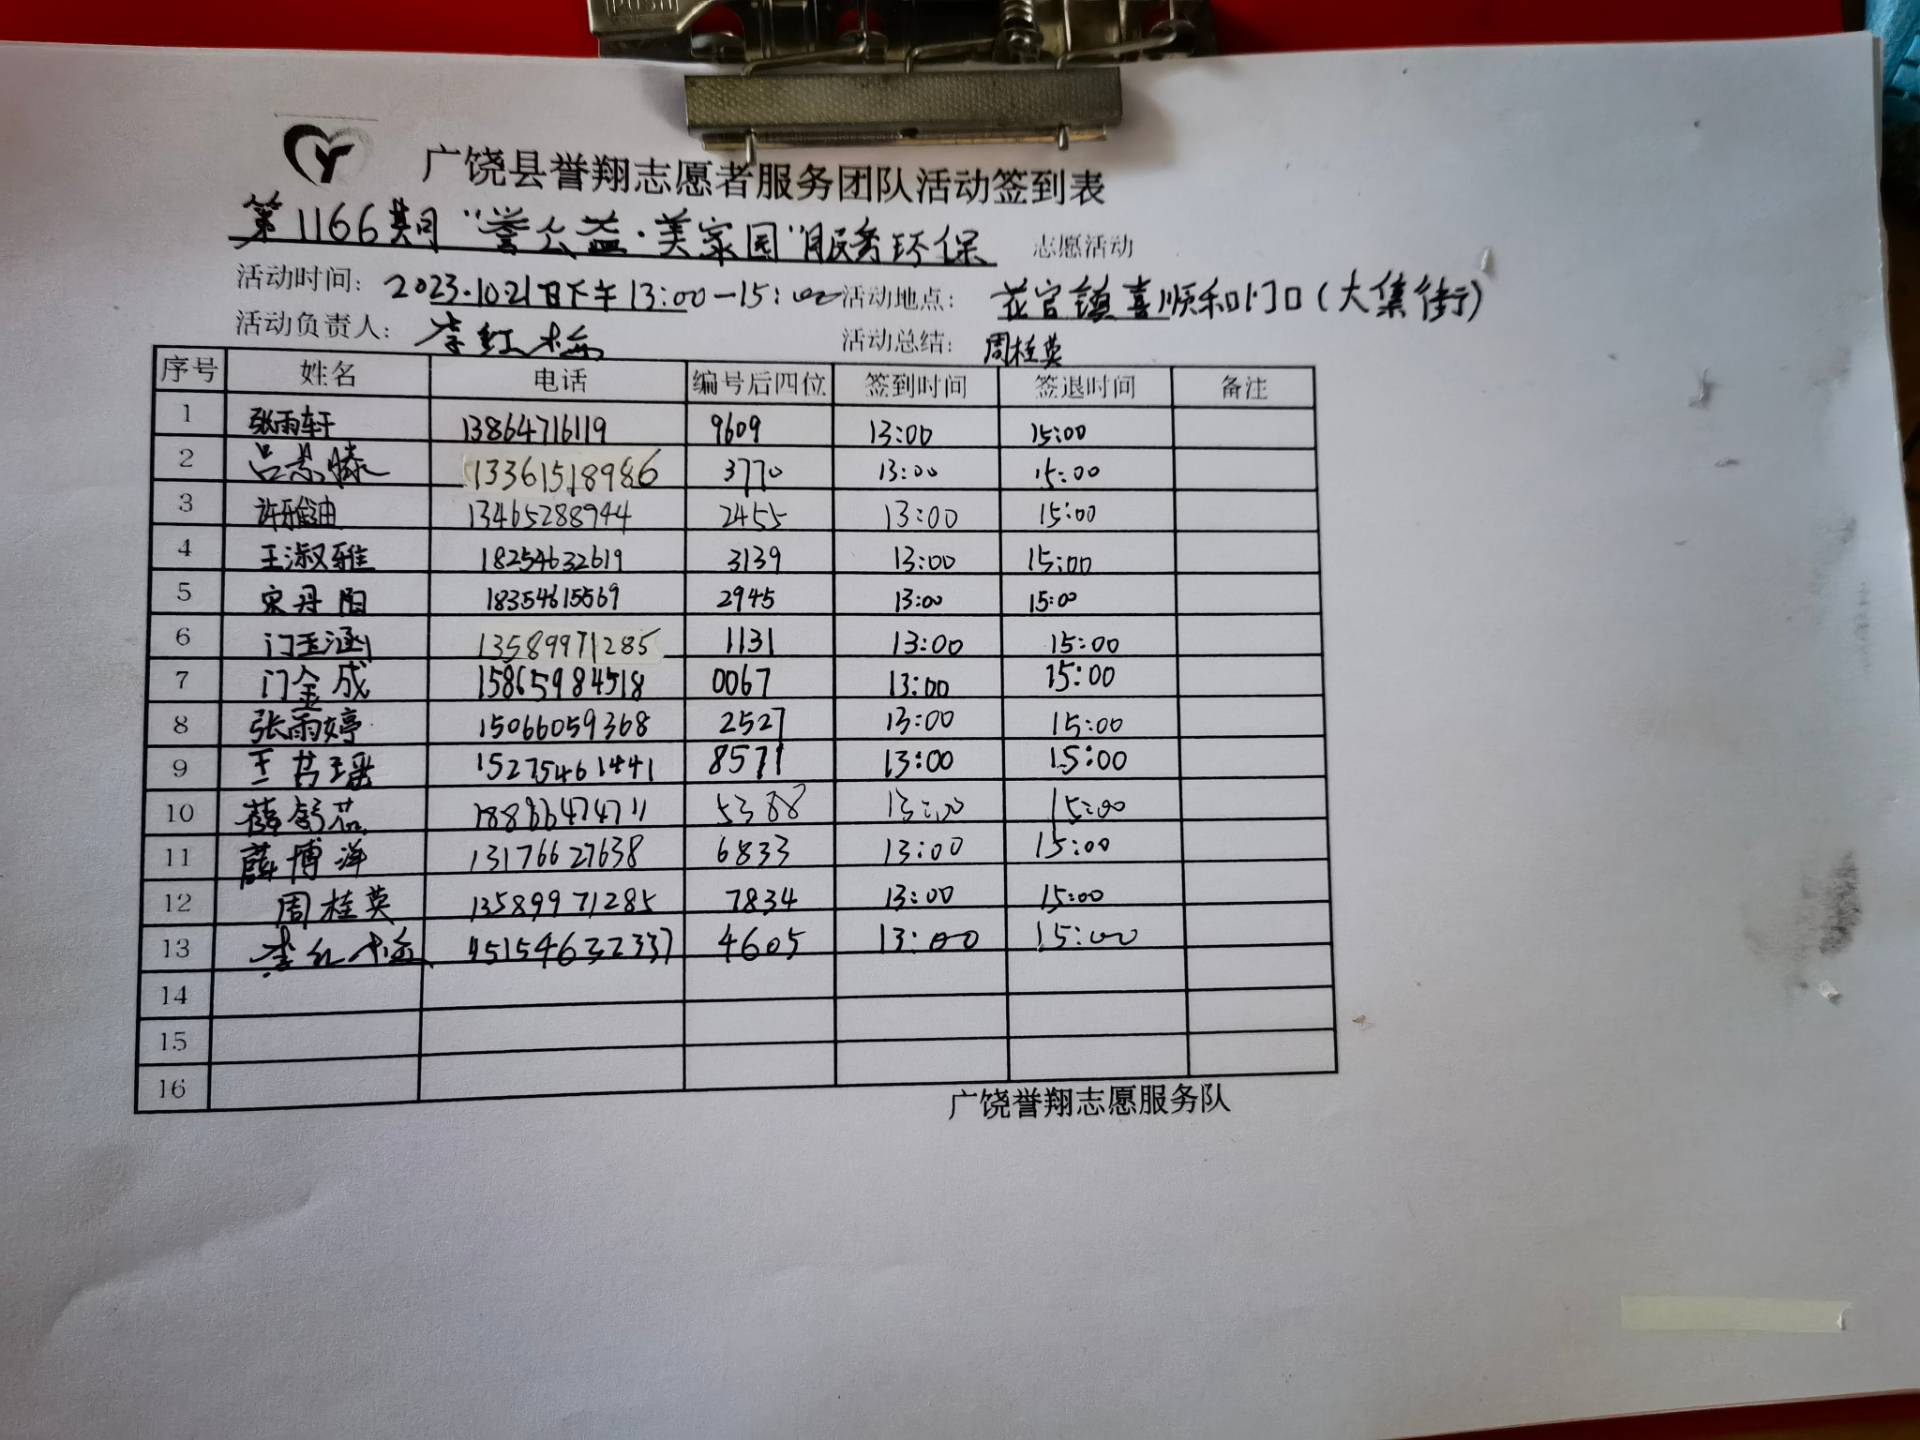 广饶县誉翔志愿者服务团队活动签到表
第1166期“誉公益·美家园”服务环保 志愿活动
活动时间： 2023.10.21日下午13:00-15:00 活动地点： 花官镇喜顺和门口(大集街)
活动负责人： 李红梅 活动总结： 周桂英
序号 姓名 电话 编号后四位 签到时间 签退时间 备注
1 张雨轩 13864716119 9609 13:00 15:00
2 吕 13361518986 3770 13:00 15:00
3 许雅 13465288944 2455 13:00 15:00
4 王淑雅 18254632619 3139 13:00 15:00
5 宋丹阳 18354615569 2945 13:00 15:00
6 门玉涵 13589971285 1131 13:00 15:00
7 门金成 15865984518 0067 13:00 15:00
8 张雨婷 15066059368 2527 13:00 15:00
9 王茗瑶 15275461441 8571 13:00 15:00
10 薛舒 18866474711 5388 13:00 15:00
11 薛博洋 13176627638 6833 13:00 15:00
12 周桂英 13589971285 7834 13:00 15:00
13 李红梅 15154632337 4605 13:00 15:00
14
15
16
广饶誉翔志愿服务队